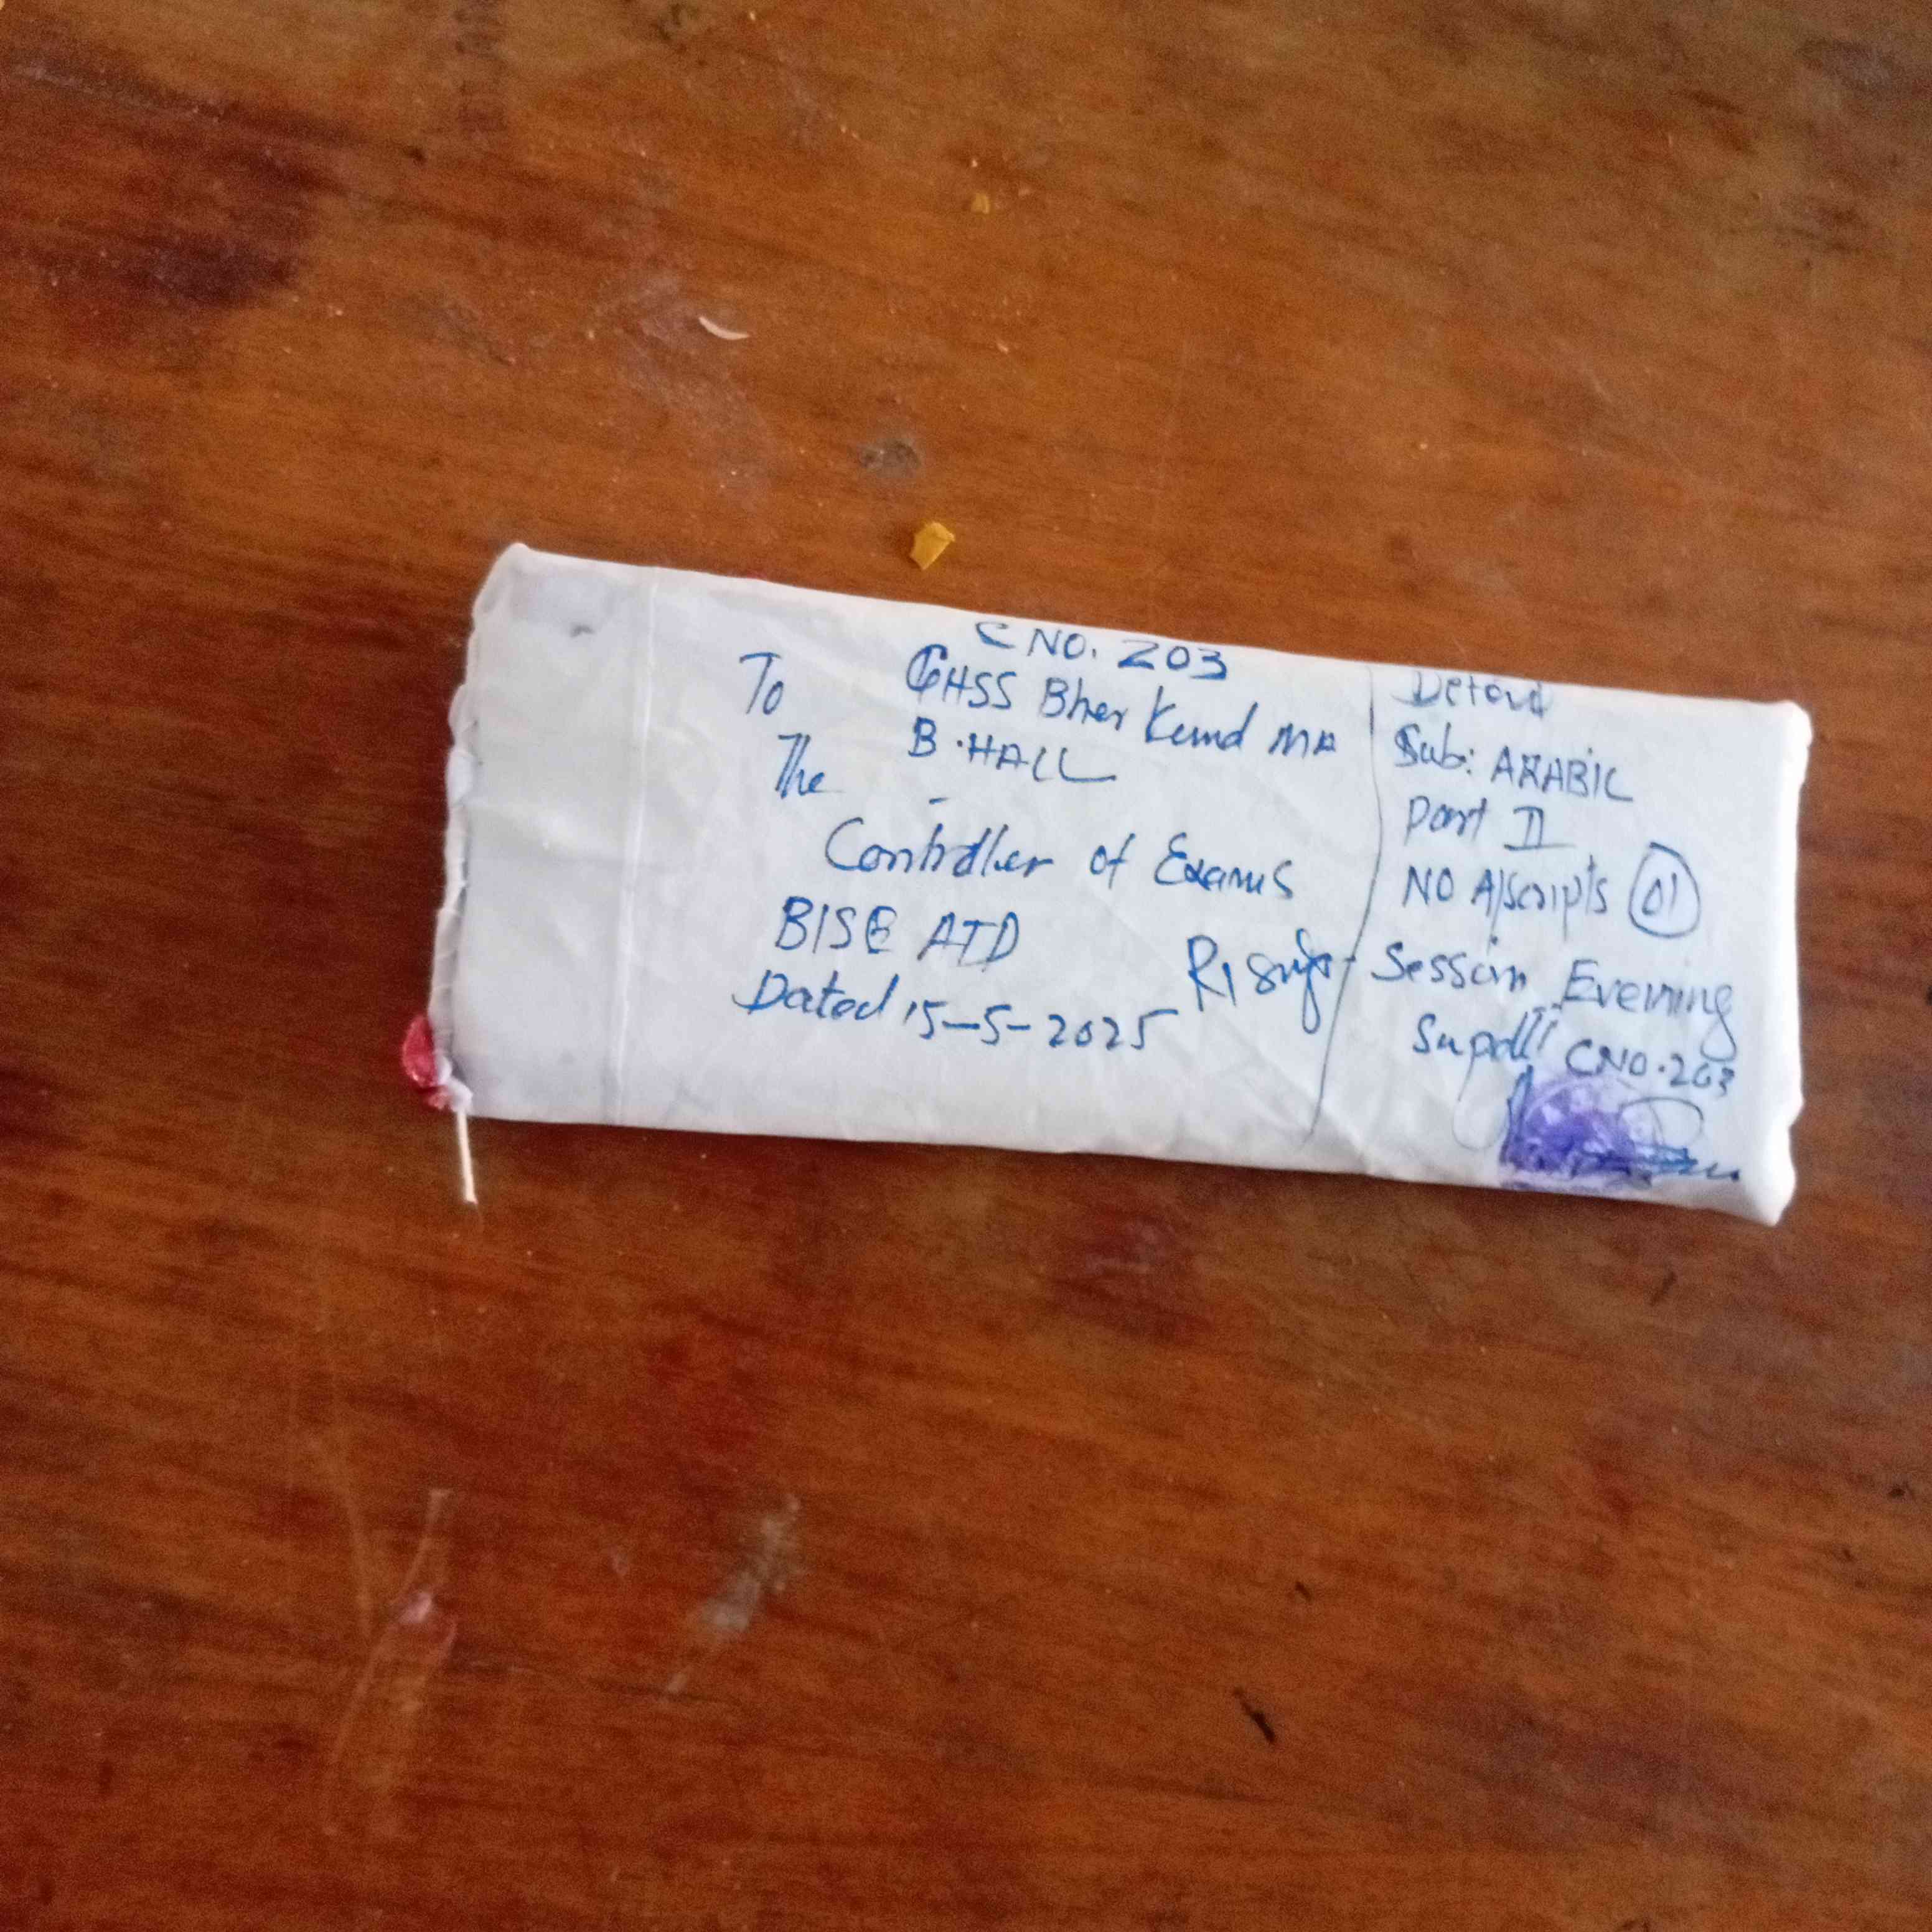 C NO. 203
GHSS Bher Kund MA
B.HALL
To
The
Controller of Exams
BISE ATD
Dated 15-5-2025
Sub: ARABIC
Part II
NO A/scripts 01
Session Evening
Supdtt CNO.203